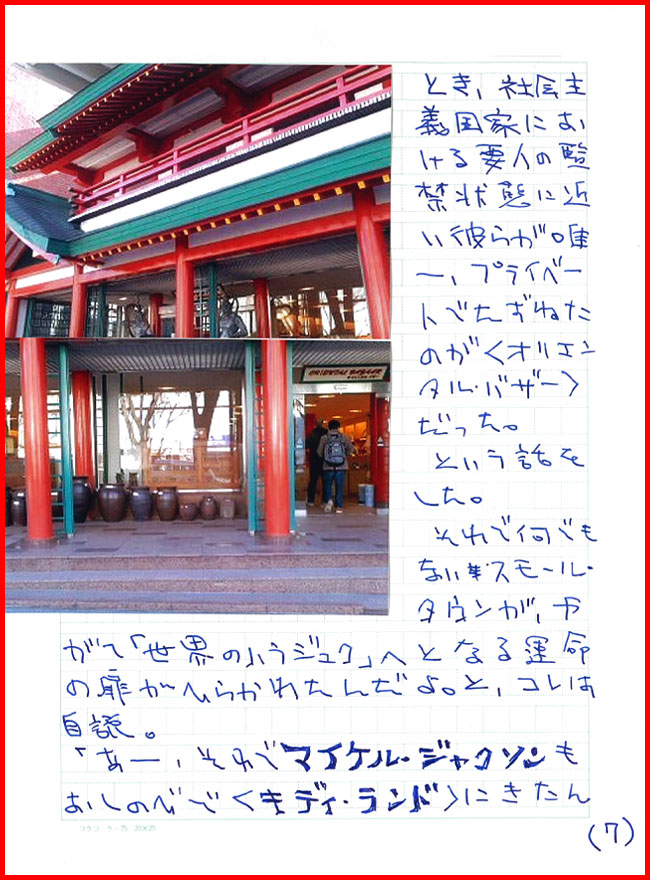 ORIENTAL BAZAAR
とき，社会主
義国家にお
ける要人の監
禁状態に近
い彼らが唯
一，プライベー
トでたずねた
のが〈オリエン
タル・バザー〉
だった。
という話を
した。
それで何でも
ないスモール・
タウンが，や
がて「世界のハラジュク」へとなる運命
の扉がひらかれたんだよ。と，コレは
自説。
「あー，それでマイケル・ジャクソンも
おしのびで〈キディ・ランド〉にきたん
(7)
コクヨ ケ-75 20×20